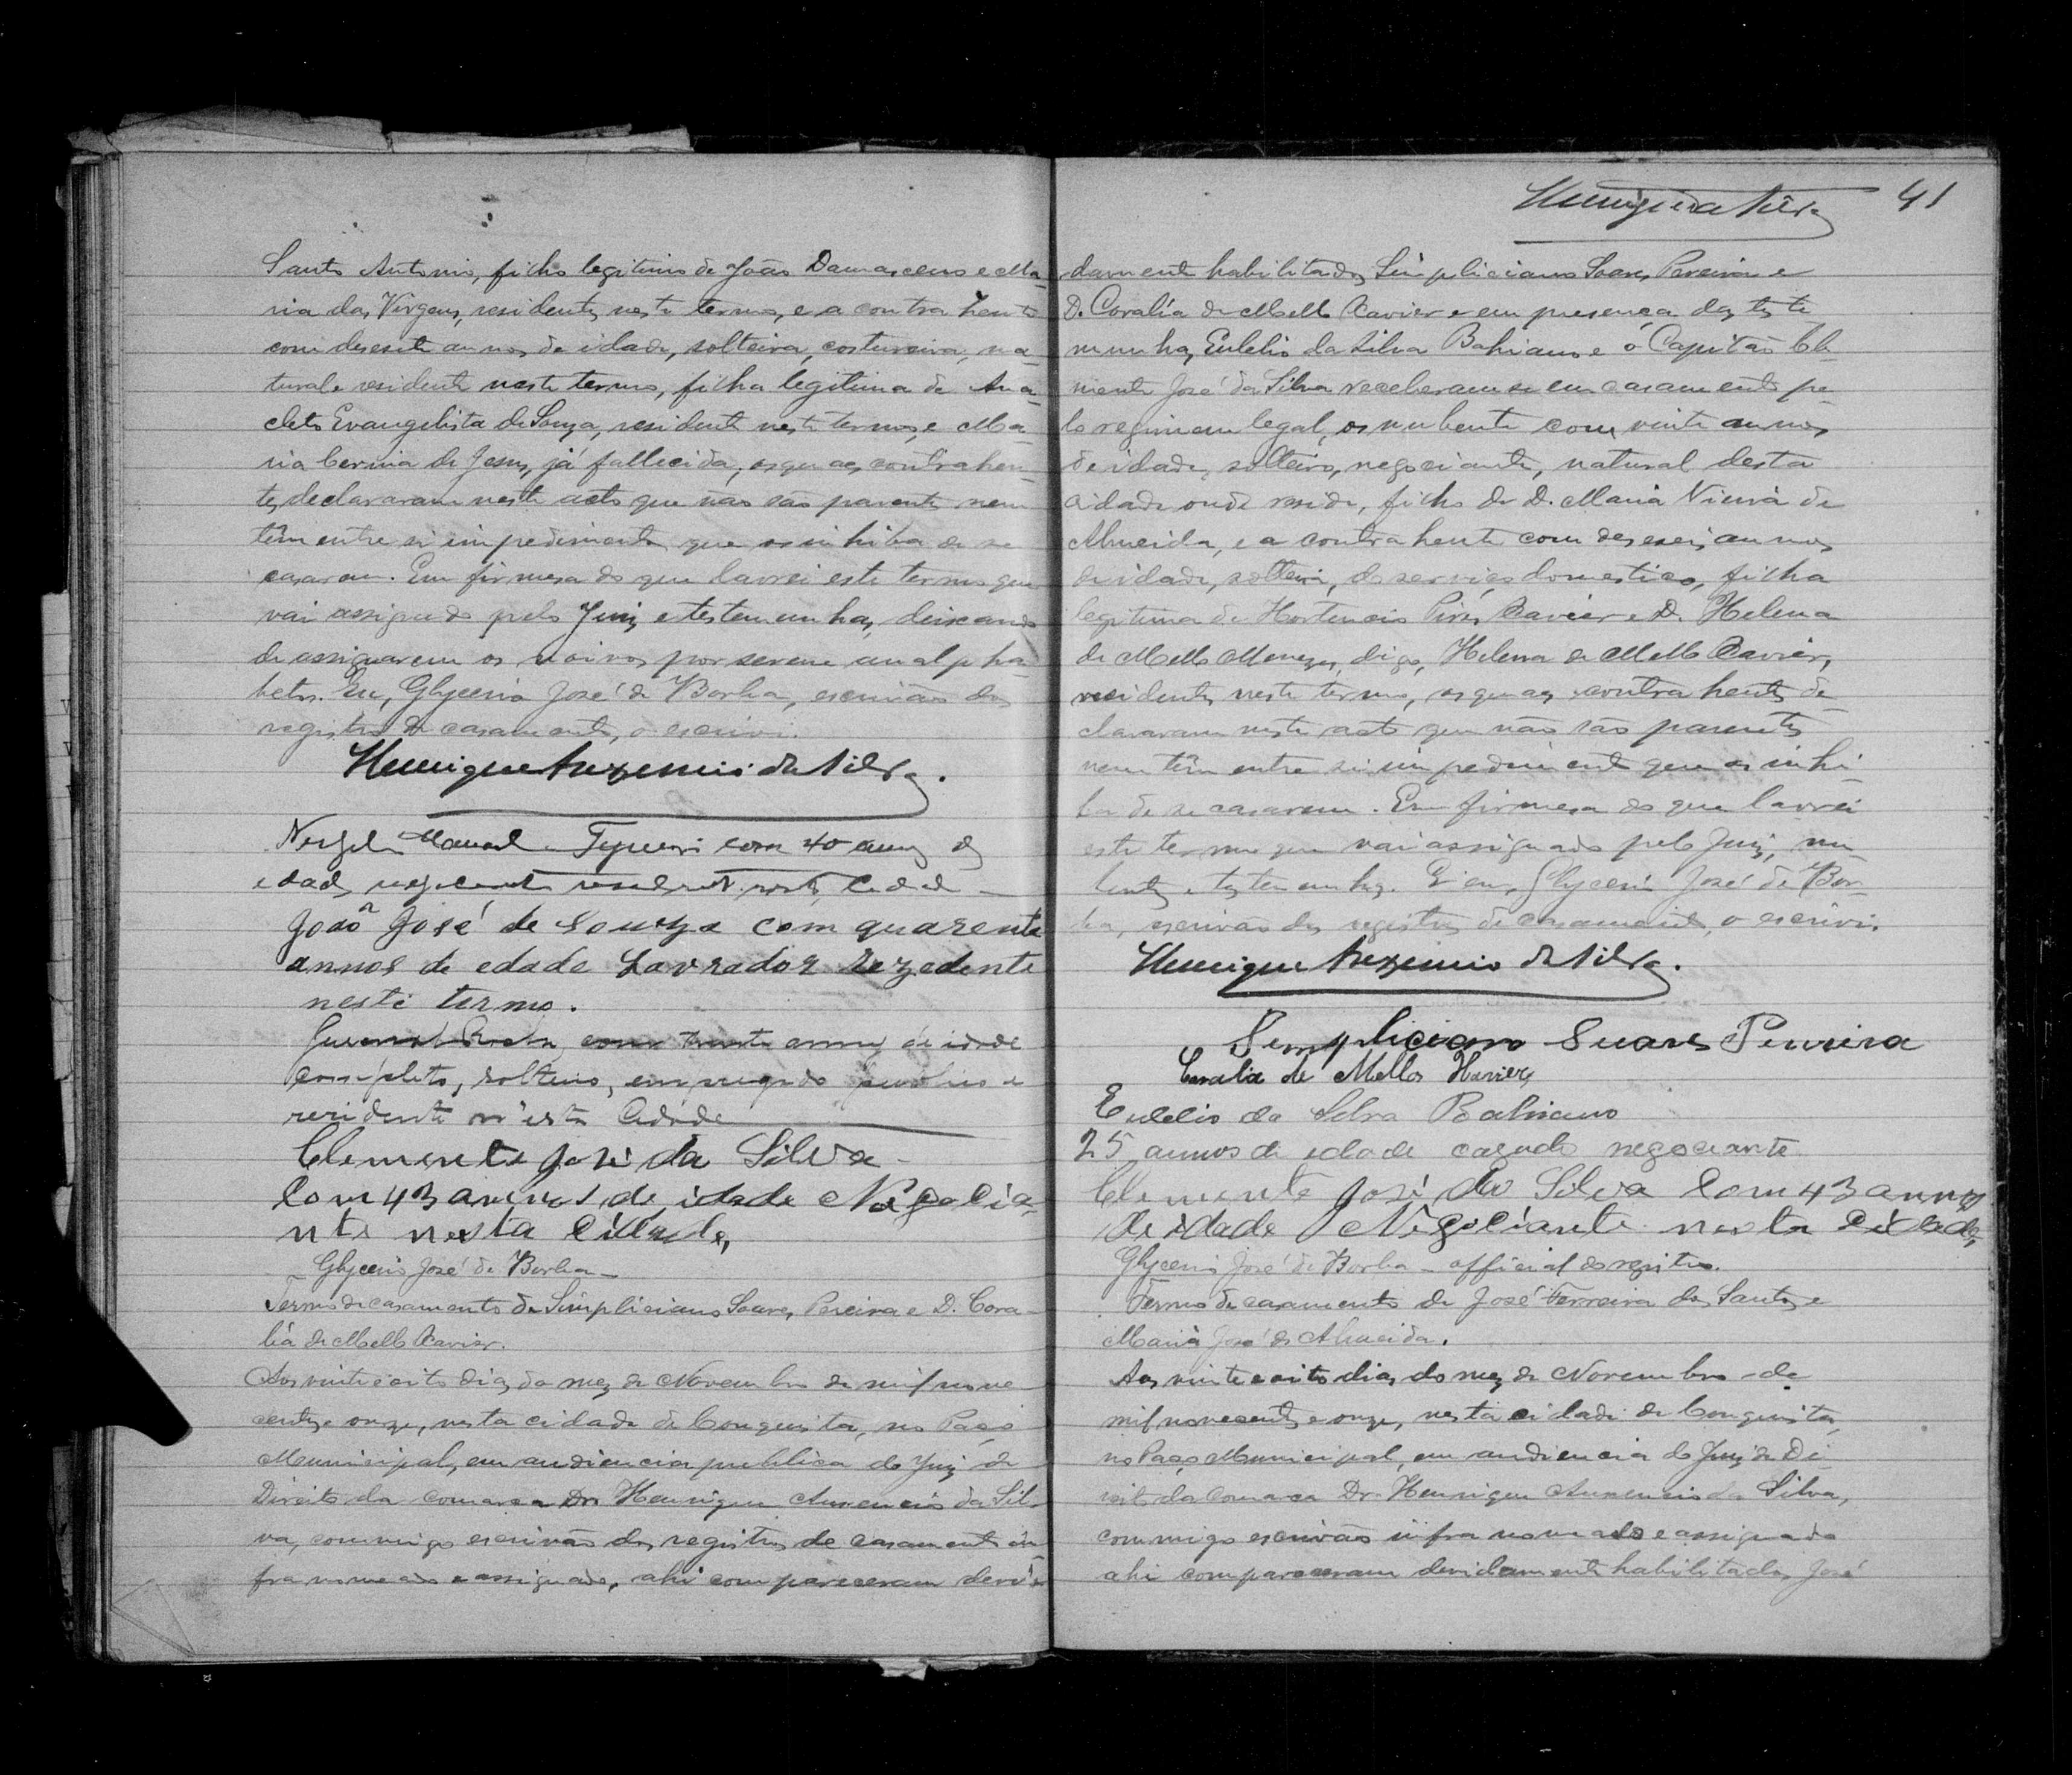 Santo Antonio, filho legitimo de João Damasceno e Ma-
ria das Virgens, residentes neste termo, e a contrahente
com desesete annos de idade, solteira, costureira, na-
tural e residente neste termo, filha legitima de Ana-
cleto Evangelista de Souza, residente neste termo, e Ma-
ria de Jesus, já fallecida, os quaes contrahen-
tes declararam neste acto que não são parentes nem
têm entre si impedimento que os inhiba de se
casarem. Em firmesa do que lavrei este termo que
vai assignado pelo Juiz e testemunhas, deixando
de assignarem os noivos por serem analpha-
betos. Eu, Glycerio José de Borba, escrivão dos
registros de casamentos, o escrevi.
Henrique Auxencio da Silva.
Manoel com 40 annos de
edade negociante nesta Cidade
João José de Souza com quarenta
annos de edade Lavrador rezedente
neste termo.
com trinta annos de idade
completos, solteiro, empregado publico e
residente n'esta Cidade
Clemente José da Silva
Com 43 annos de idade Negocia-
nte nesta Cidade,
Glycerio José de Borba
Termo de casamento de Simpliciano Soares Pereira e D. Cora-
lia de Mello Xavier.
Aos vinte e oito dias do mez de Novembro de mil nove-
centos e onze, nesta cidade de Conquista, no Paço
Municipal, em audiencia publica do Juiz de
Direito da comarca Dr. Henrique Auxencio da Sil-
va, commigo escrivão dos registros de casamentos in-
fra nomeado e assignado, ahi compareceram devi-
Henrique da Silva 41
damente habilitados Simpliciano Soares Pereira e
D. Coralia de Mello Xavier e em presença das teste
munhas, Eulelio da Silva Bahiano e o Capitão Cle-
mente José da Silva receberam-se em casamento pe-
lo regimem legal, os nubente com vinte annos
de idade, solteiro, negociante, natural desta
cidade onde reside, filho de D. Maria Vieira de
Almeida, e a contrahente com deseseis annos
de idade, solteira, do serviço domestico, filha
legitima de Hortencio Pires Xavier e D. Helena
de Mello Menezes, digo, Helena de Mello Xavier,
residentes neste termo, os quaes contrahentes de-
clararam neste acto que não são parentes
nem têm entre si impedimento que os inhi-
ba de se casarem. Em firmesa do que lavrei
este termo que vai assignado pelo Juiz, nu-
bentes e testemunhas. E eu, Glycerio José de Bor-
ba, escrivão dos registros de casamentos, o escrevi.
Henrique Auxencio da Silva.
Sempliciano Suares Pereira
Coralia de Mello Xavier
Eulelio da Silva Bahiano
25 annos de edade cazado negociante
Clemente José da Silva Com 43 annos
de idade Negociante nesta Cidade,
Glycerio José de Borba - official do registro.
Termo de casamento de José Ferreira dos Santos e
Maria José de Almeida.
Aos vinte e oito dias do mez de Novembro de
mil novecentos e onze, nesta cidade de Conquista,
no Paço Municipal, em audiencia do Juiz de Di-
reito da comarca Dr. Henrique Auxencio da Silva,
commigo escrivão infra nomeado e assignado
ahi compareceram devidamente habilitados José